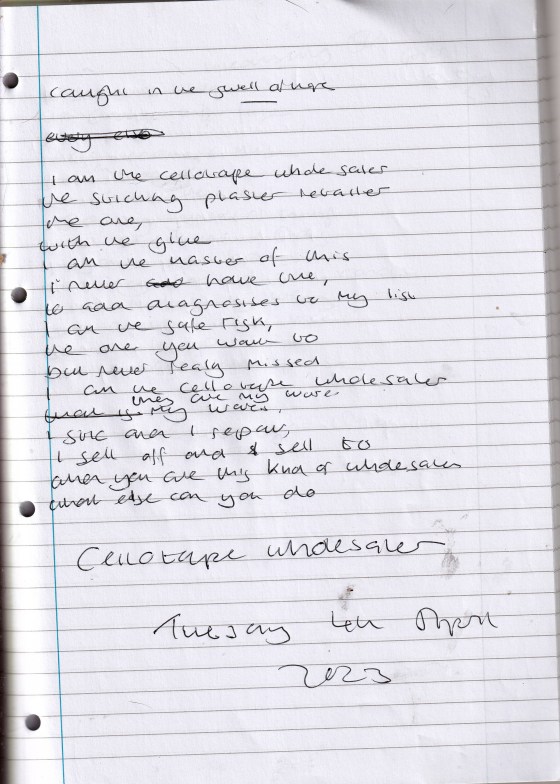 caught in the swell of hope
every else
I am the cellotape wholesaler
the sticking plaster retailer
the one,
with the glue
I am the master of this
I never have time,
to add diagnosises to my list
I am the safe risk,
the one you want to
but never realy missed
I am the cellotape wholesaler
they are my ware
that is my wares,
I stic and I repair,
I sell off and sell to
when you are this kind of wholesaler
what else can you do
Cellotape wholesaler
Tuesday 4th April
2023